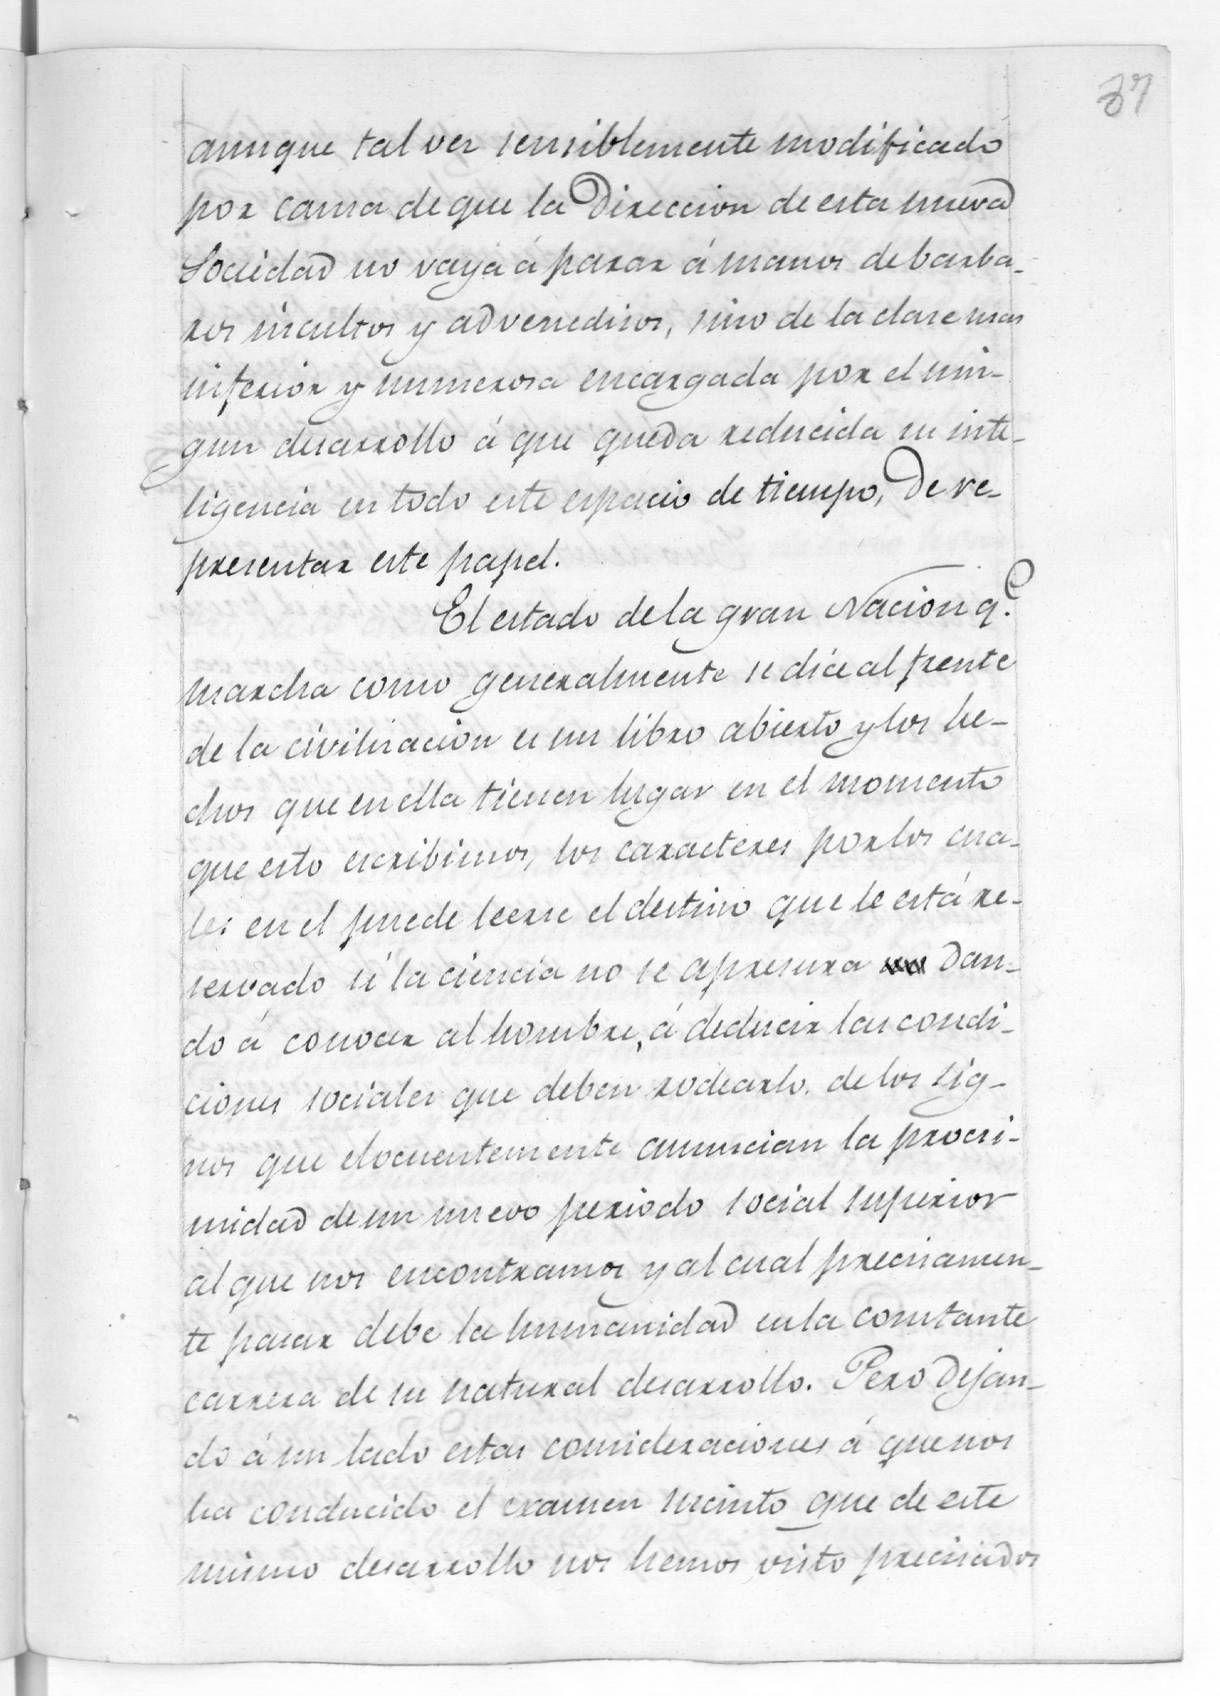 37
aunque tal vez sensiblemente modificado
por causa de que la Direccion de esta nueva
Sociedad no vaya á parar á manos de barba-
ros incultos y advenedizos, sino de la clase mas
inferior y numerosa encargada por el nin-
gun desarrollo á que queda reducida su inte-
ligencia en todo este espacio de tiempo, De re-
presentar este papel.
El estado de la gran Nacion q.e
marcha como generalmente se dice al frente
de la civilizacion es un libro abierto y los he-
chos que en ella tienen lugar en el momento
que esto escribimos, los caracteres por los cua-
les en el puede leerse el destino que le está re-
servado si la ciencia no se apresura Dan-
do á conocer al hombre, á deducir las condi-
ciones sociales que deben rodearlo. de los sig-
nos que elocuentemente anuncian la procsi-
midad de un nuevo periodo social superior
al que nos encontramos y al cual precisamen-
te pasar debe la humanidad en la constante
carrera de su natural desarrollo. Pero Dejan-
do á un lado estas consideraciones á que nos
ha conducido el examen sucinto que de este
mismo desarrollo nos hemos visto precisados